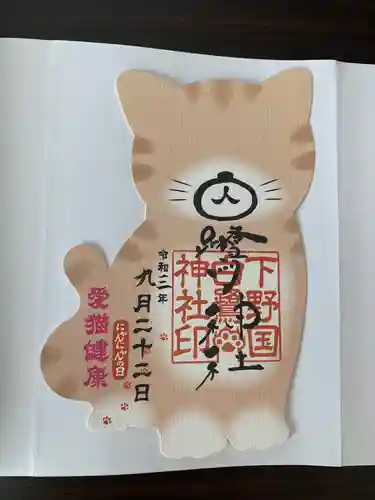 下野国
白鷺
神社印
令和二年
九月二十二日
にゃんにゃんの日
愛猫健康